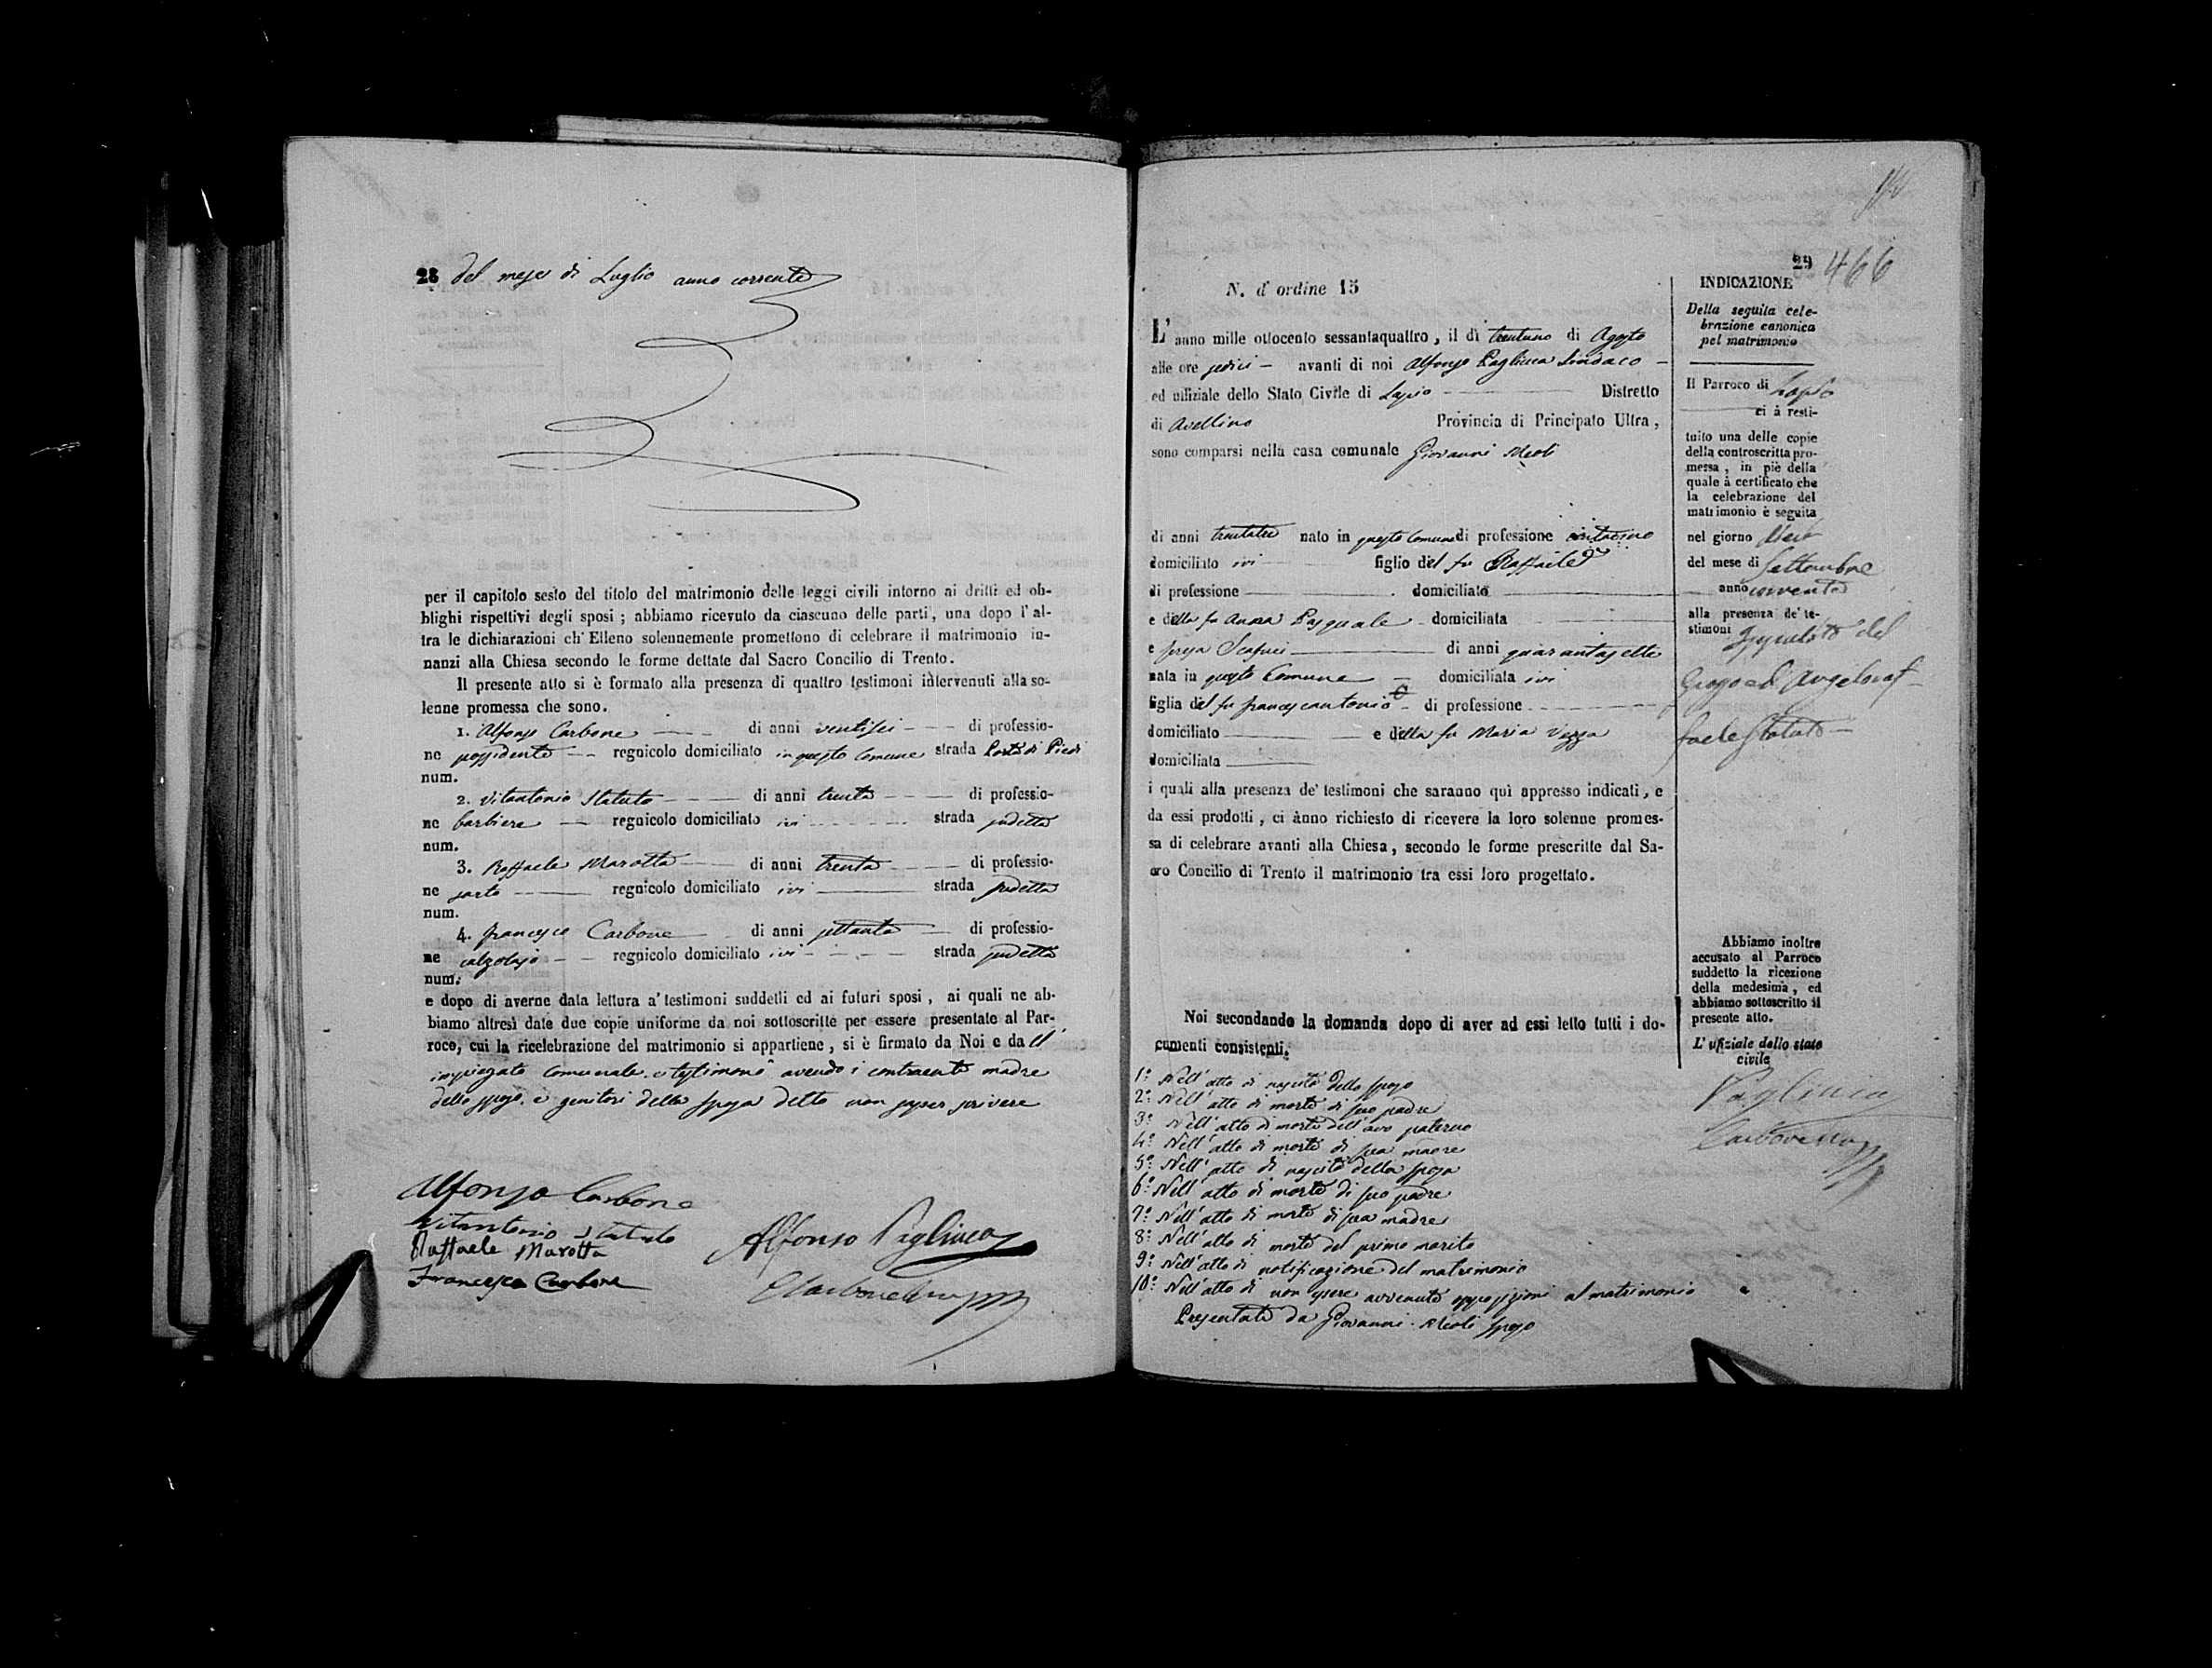 28 del mese di Luglio anno corrente
per il capitolo sesto del titolo del matrimonio delle leggi civili intorno ai dritti ed ob-
blighi rispettivi degli sposi ; abbiamo ricevuto da ciascuno delle parti, una dopo l' al-
tra le dichiarazioni ch' Elleno solennemente promettono di celebrare il matrimonio in-
nanzi alla Chiesa secondo le forme dettate dal Sacro Concilio di Trento.
Il presente atto si è formato alla presenza di quattro testimoni intervenuti alla so-
lenne promessa che sono.
1. Alfonso Carbone di anni ventisei di professio-
ne possidente regnicolo domiciliato in questo Comune strada Porta di Piedi
num.
2. Vitantonio Statuto di anni trenta di professio-
ne barbiere regnicolo domiciliato ivi strada sudetta
num.
3. Raffaele Marotta di anni trenta di professio-
ne sarto regnicolo domiciliato ivi strada sudetta
num.
4. Francesco Carbone di anni settanta di professio-
ne calzolajo regnicolo domiciliato ivi strada sudetta
num.
e dopo di averne data lettura a' testimoni suddetti ed ai futuri sposi, ai quali ne ab-
biamo altresì date due copie uniforme da noi sottoscritte per essere presentate al Par-
roco, cui la ricelebrazione del matrimonio si appartiene, si è firmato da Noi e dall'
impiegato Comunale e testimoni avendo i contraenti madre
dello sposo e genitori della sposa detto non saper scrivere
Alfonso Carbone
Vitantonio Statuto
Raffaele Marotta
Francesco Carbone
Alfonso Pagliuca
29 466
N. d' ordine 15
L' anno mille ottocento sessantaquattro, il dì trentuno di Agosto
alle ore sedici avanti di noi Alfonso Pagliuca Sindaco
ed uffiziale dello Stato Civile di Lapio Distretto
di Avellino Provincia di Principato Ultra,
sono comparsi nella casa comunale Giovanni Meoli
di anni trentatre nato in questo Comune di professione contadino
domiciliato ivi figlio del fu Raffaele
di professione domiciliato
e della fu Anna Pasquale domiciliata
e di anni quarantasette
nata in questo Comune domiciliata ivi
figlia del fu Francescantonio di professione
domiciliato e della fu Maria Vozza
domiciliata
i quali alla presenza de' testimoni che saranno quì appresso indicati, e
da essi prodotti, ci ànno richiesto di ricevere la loro solenne promes-
sa di celebrare avanti alla Chiesa, secondo le forme prescritte dal Sa-
cro Concilio di Trento il matrimonio tra essi loro progettato.
Noi secondando la domanda dopo di aver ad essi letto tutti i do-
cumenti consistenti.
1º Nell' atto di nascita dello sposo
2º Nell' atto di morte di suo padre
3º Nell' atto di morte dell' avo paterno
4º Nell' atto di morte di sua madre
5º Nell' atto di nascita della sposa
6º Nell' atto di morte di suo padre
7º Nell' atto di morte di sua madre
8º Nell' atto di morte del primo marito
9º Nell' atto di notificazione del matrimonio
10º Nell' atto di non essere avvenute opposizioni al matrimonio
Presentati da Giovanni Meoli sposo
INDICAZIONE
Della seguita cele-
brazione canonica
pel matrimonio
Il Parroco di Lapio
ci à resti-
tuito una delle copie
della controscritta pro-
messa, in piè della
quale à certificato che
la celebrazione del
matrimonio è seguita
nel giorno
del mese di Settembre
anno corrente
alla presenza de' te-
stimoni Ippolito del
Grosso ed Angeloraf-
faele Statuto
Abbiamo inoltre
accusato al Parroco
suddetto la ricezione
della medesima, ed
abbiamo sottoscritto il
presente atto.
L' ufiziale dello stato
civile
Pagliuca